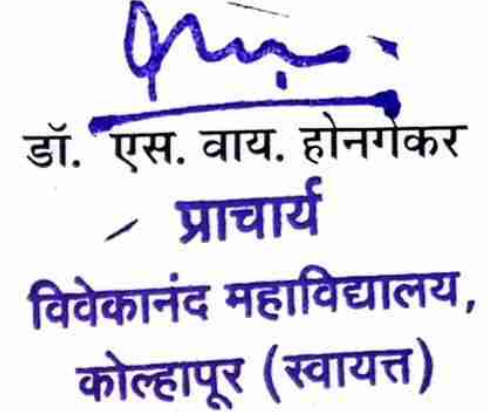 डॉ. एस. वाय. होनगेकर
प्राचार्य
विवेकानंद महाविद्यालय,
कोल्हापूर (स्वायत्त)